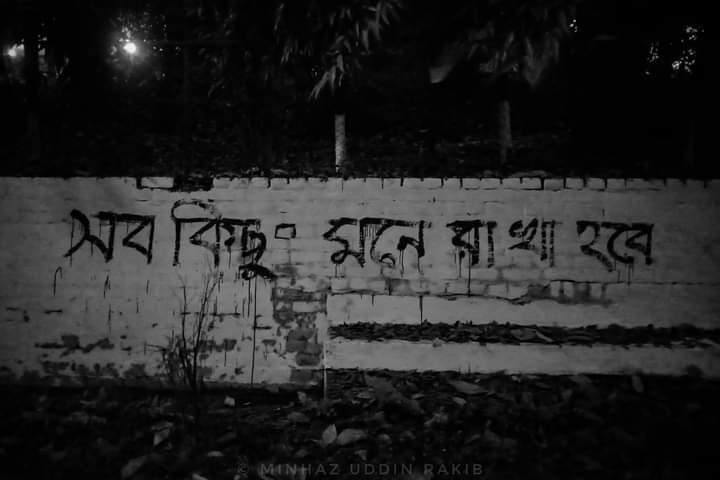 সব কিছু মনে রাখা হবে
© MINHAZ UDDIN RAKIB